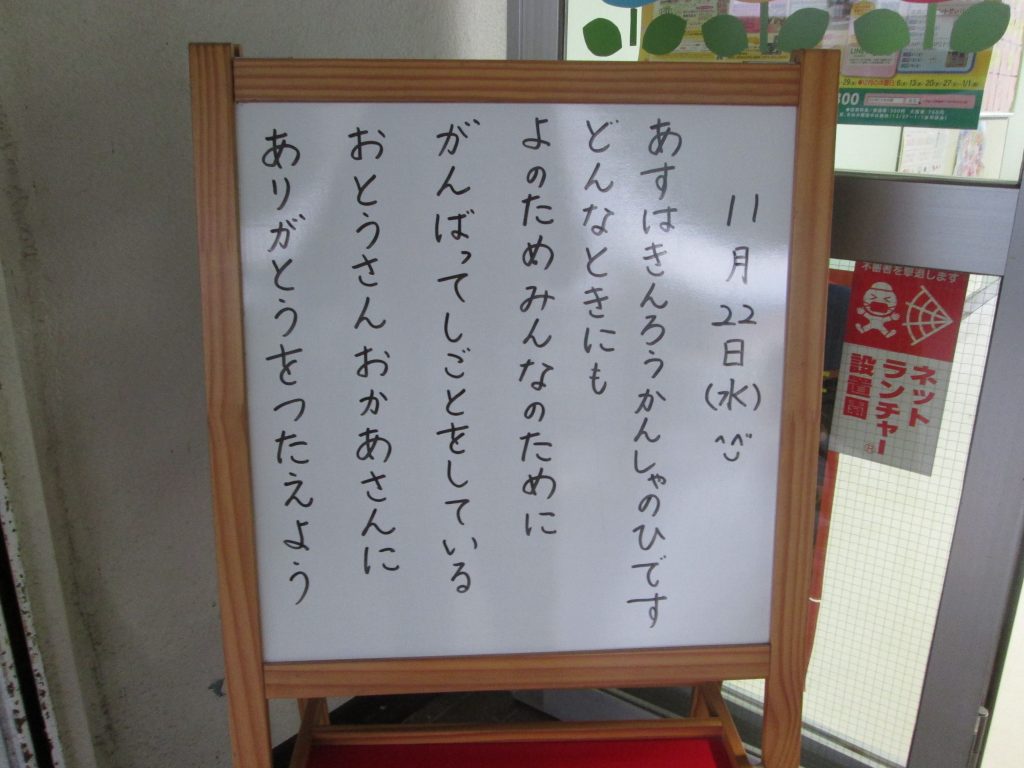 11月22日(水)
あすはきんろうかんしゃのひです
どんなときにも
よのためみんなのために
がんばってしごとをしている
おとうさんおかあさんに
ありがとうをつたえよう
不審者を撃退します
ネット
ランチャー
設置園